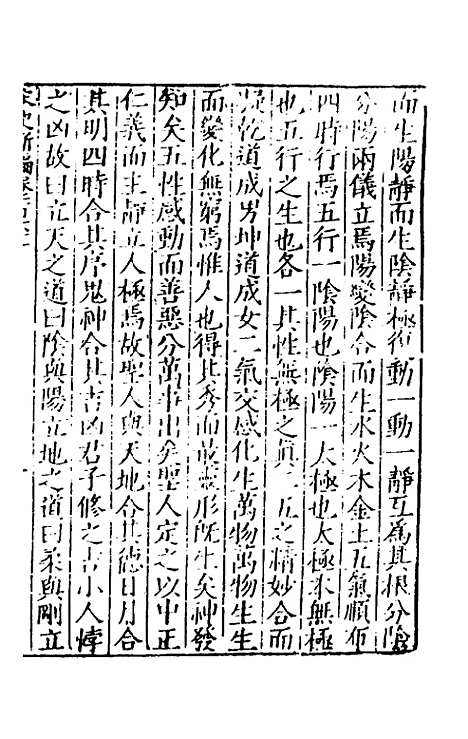 而生陽靜而生陰靜極復動一動一靜互爲其根分陰
分陽兩儀立焉陽變陰合而生水火木金土五氣順布
四時行焉五行一陰陽也陰陽一太極也太極本無極
也五行之生也各一其性無極之眞二五之精妙合而
凝乾道成男坤道成女二氣交感化生萬物萬物生生
而變化無窮焉惟人也得其秀而最靈形旣生矣神發
知矣五性感動而善惡分萬事出矣聖人定之以中正
仁義而主靜立人極焉故聖人與天地合其德日月合
其明四時合其序鬼神合其吉凶君子修之吉小人悖
之凶故曰立天之道曰陰與陽立地之道曰柔與剛立
宋史新編卷